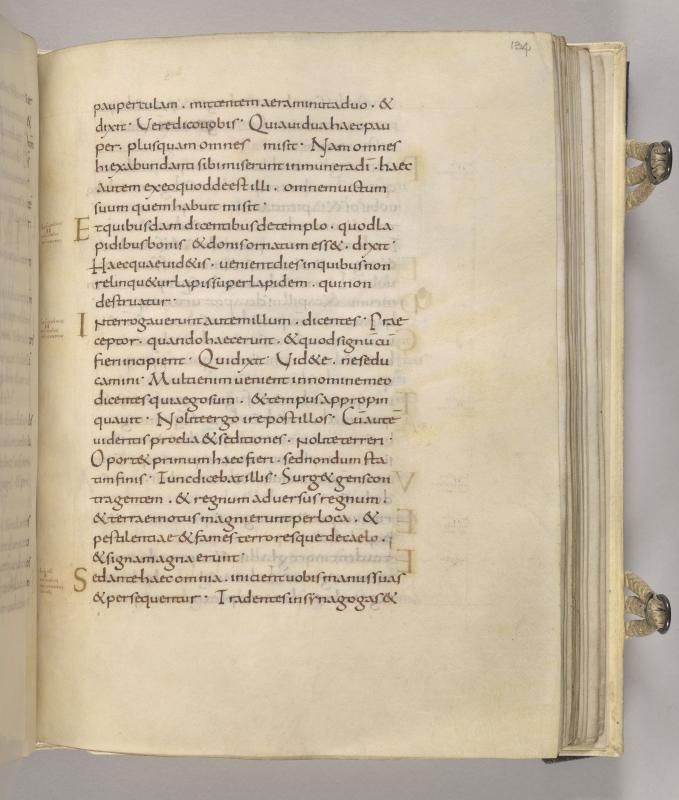 134
paupertulam . mittentem aera minuta duo . &
dixit · Vere dico uobis · Quia uidua haec pau
per . plus quam omnes misit · Nam omnes
hi ex abundanti sibi miserunt in munera dī . haec
autem ex eo quod deest illi . omnem uictum
suum quem habuit misit ·
Et quibusdam dicentibus de templo . quod la
pidibus bonis & donis ornatum ess& . dixit ·
Haec quae uid&is . uenient dies in quibus non
relinqu&ur lapis super lapidem . qui non
destruatur ·
Interrogauerunt autem illum . dicentes · Prae
ceptor . quando haec erunt . & quod signū cū
fieri incipient · Qui dixit · Vid&e . ne sedu
camini · Multi enim uenient in nomine meo
dicentes quia ego sum . & tempus appropin
quauit · Nolite ergo ire post illos · Cū autē
uideritis proelia & seditiones . nolite terreri ·
Oport& primum haec fieri . sed nondum sta
tim finis · Tunc dicebat illis · Surg& gens con
tra gentem . & regnum aduersus regnum .
& terrae motus magni erunt per loca . &
pestilentiae & fames terroresque de caelo .
& signa magna erunt ·
Sed ante haec omnia . inicient uobis manus suas
& persequentur · Tradentes in synagogas &